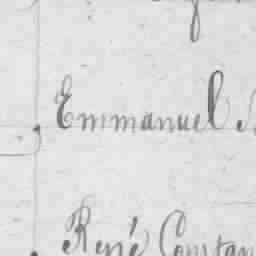 Emmanuel
René Constan